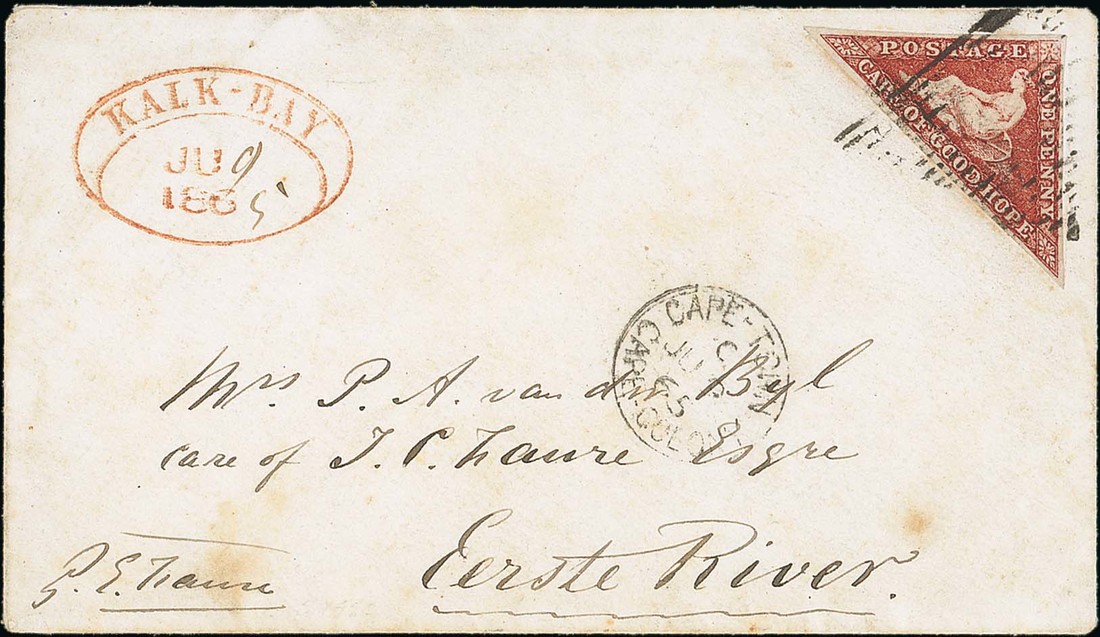 KALK-BAY
JU 9
186 5
POSTAGE
ONE PENNY
CAPE OF GOOD HOPE
CAPE-TOWN
C
JU
65
CAPE COLONY
Mrs P. A. van der Byl
care of J. C. Faure Esqre
Eerste River.
Faure